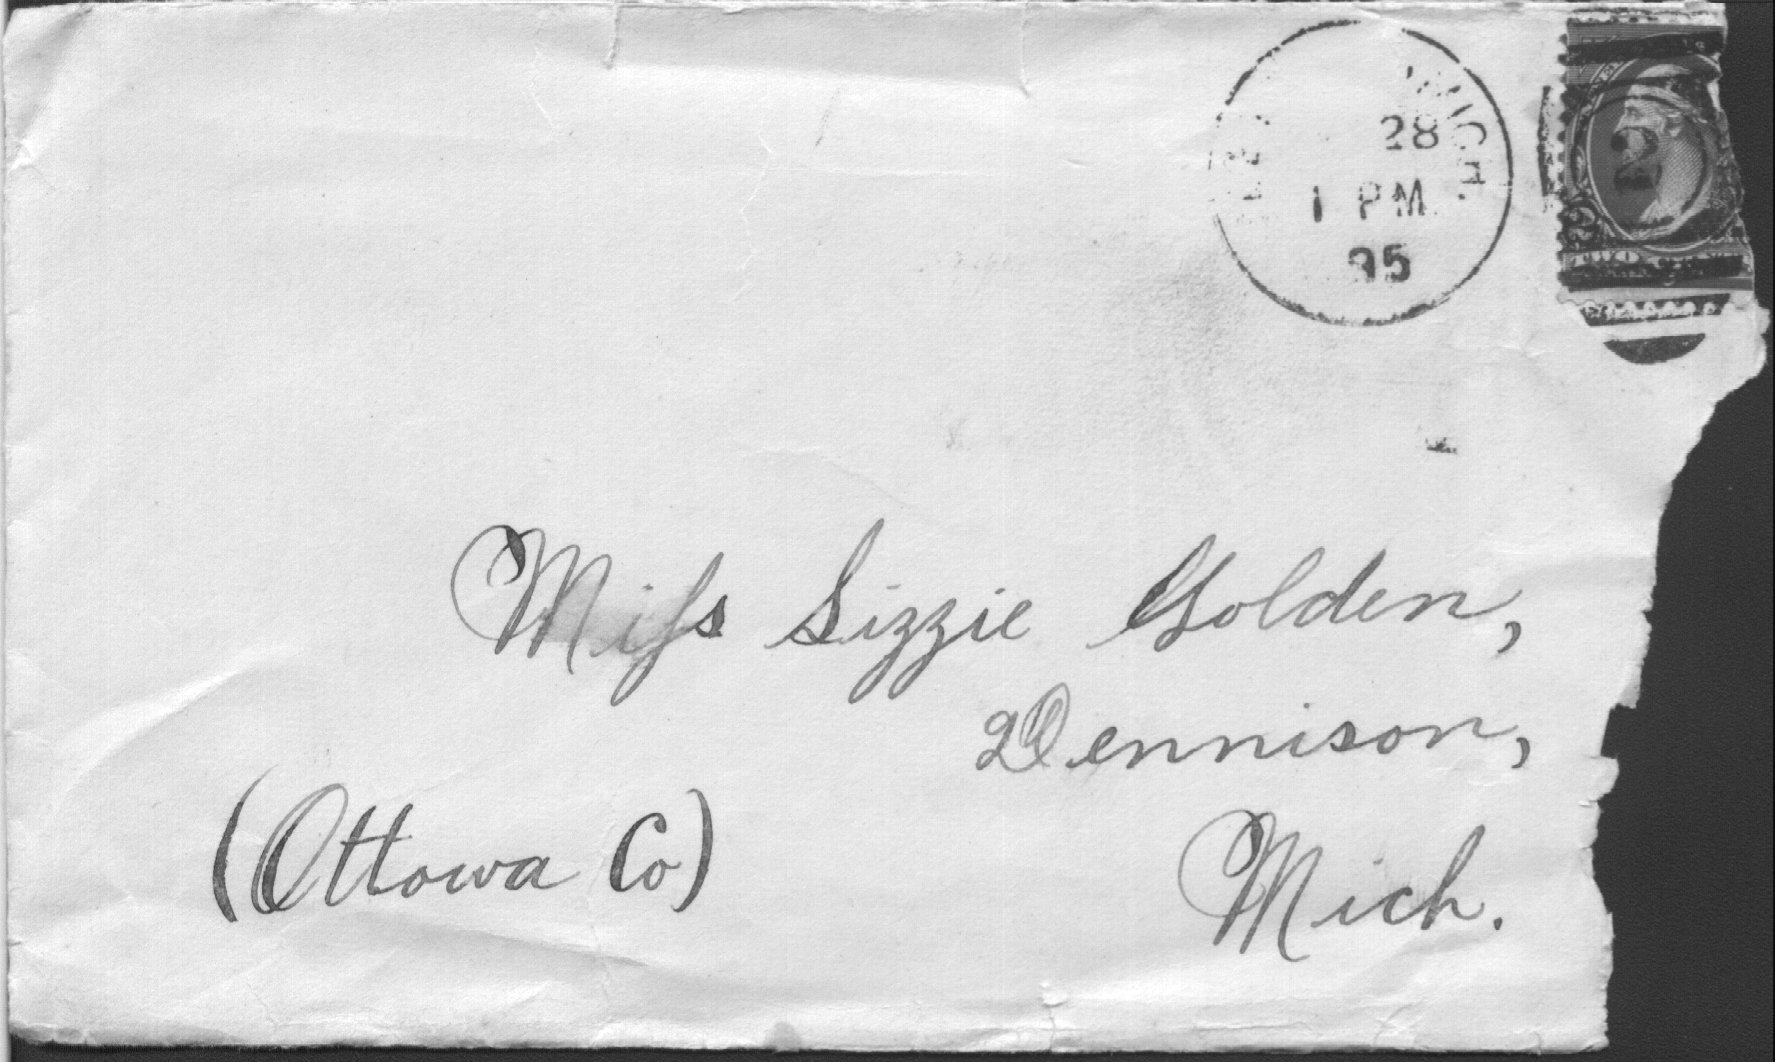 MICH.
28
1 PM
95
2
TWO
Miss Lizzie Golden,
Dennison,
(Ottowa Co)
Mich.